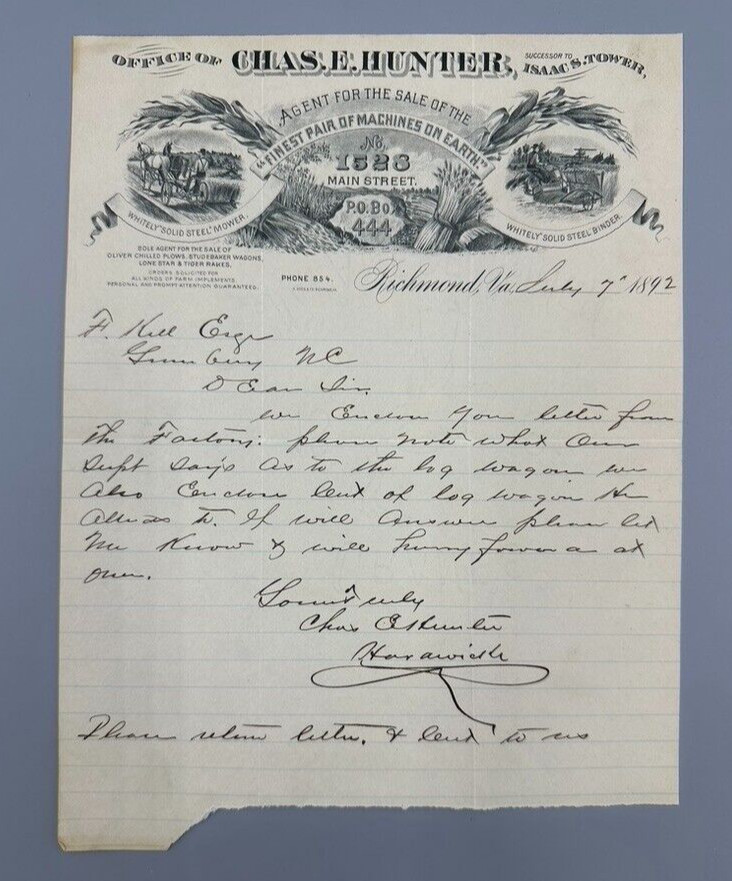 OFFICE OF CHAS. E. HUNTER, SUCCESSOR TO ISAAC S. TOWER,
AGENT FOR THE SALE OF THE
"FINEST PAIR OF MACHINES ON EARTH"
No.
1528
MAIN STREET.
P.O. BOX
444
WHITELY "SOLID STEEL" MOWER.
WHITELY "SOLID STEEL" BINDER.
SOLE AGENT FOR THE SALE OF
OLIVER CHILLED PLOWS, STUDEBAKER WAGONS,
LONE STAR & TIGER RAKES,
ORDERS SOLICITED FOR
ALL KINDS OF FARM IMPLEMENTS.
PERSONAL AND PROMPT ATTENTION GUARANTEED.
PHONE 854.
Richmond, Va. July 7" 1892
F. Esqr
NC
Dear Sir.
we Enclose you letter from
the Factory. please note what Our
Supt Says as to the log wagon we
Also Enclose of log wagon He
to. If will Answer please let
me Know & will hurry at
once.
Yours Truly
Chas E Hunter
Please return letter. & to us